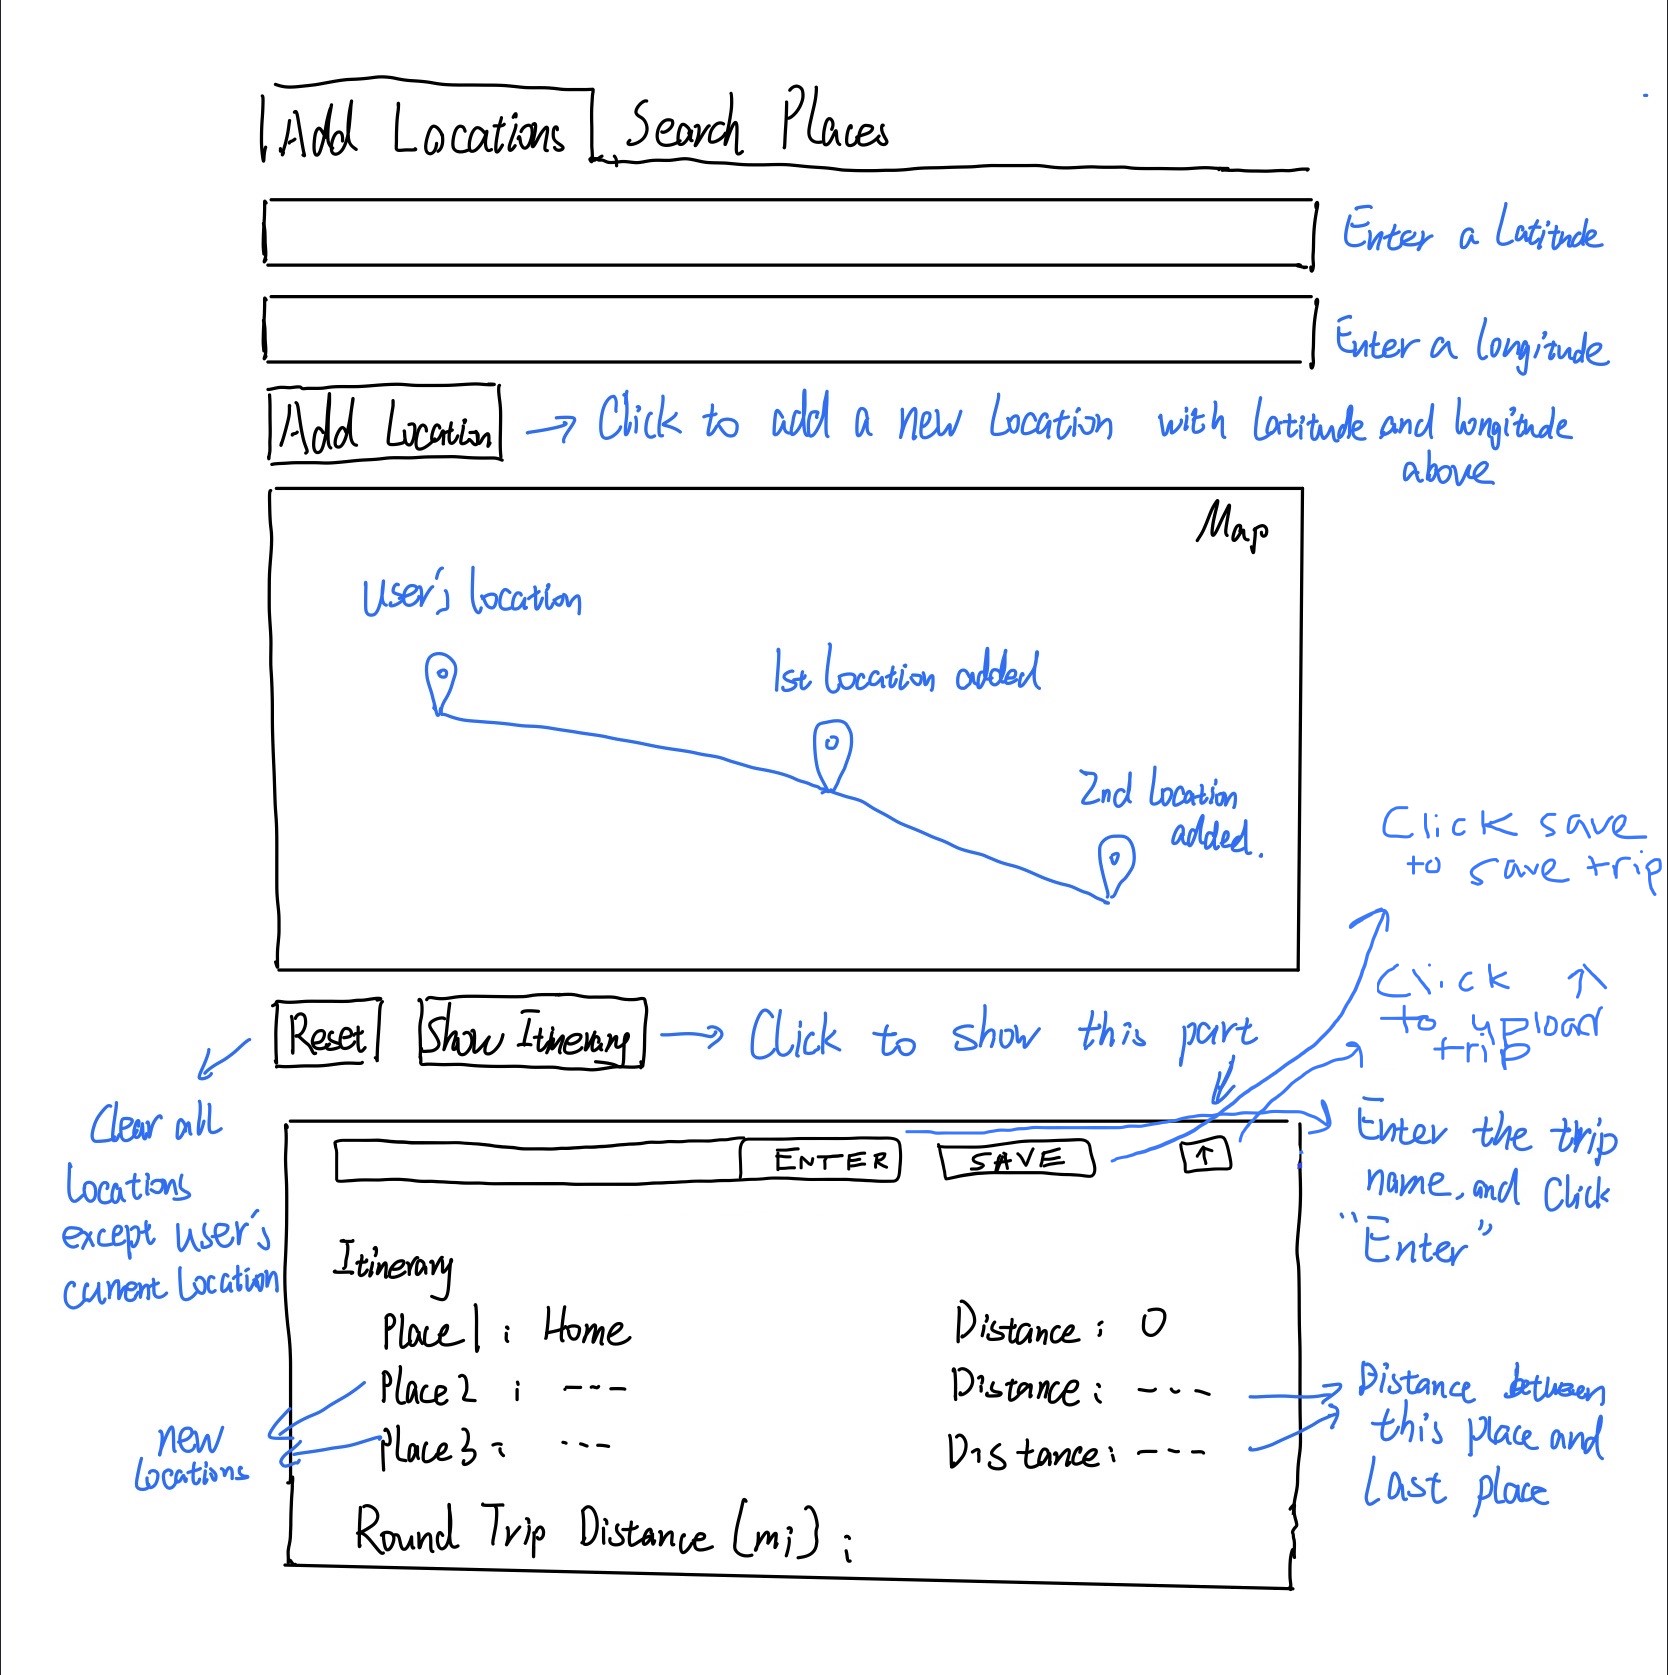 Add Locations Search Places
Enter a Latitude
Enter a longitude
Add Location → Click to add a new Location with latitude and longitude
above
Map
User's location
1st Location added
2nd Location
added.
Click save
to save trip
Click ↑
to upload
trip
Reset Show Itinerary → Click to show this part
Clear all
locations
except user's
current Location
ENTER SAVE ↑
Enter the trip
name, and Click
"Enter"
Itinerary
Place 1 : Home Distance : 0
Place 2 : --- Distance : ---
Place 3 : --- Distance : ---
new
locations
Distance between
this place and
Last place
Round Trip Distance (mi) :